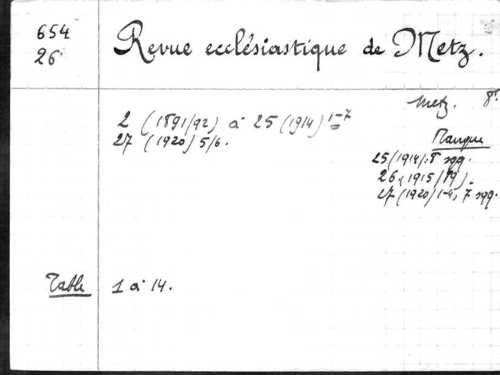 654
26
Revue ecclésiastique de Metz.
Metz. 8°.
2 (1891/92) à 25 (1914) 1-7
27 (1920) 5/6.
Manque
25 (1914): 8 sqq.
26 (1915/19).
27 (1920) 1-4, 7 sqq.
Table 1 à 14.